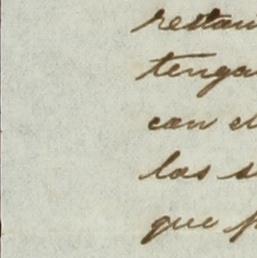 restau
tenga
con el
las s
que p